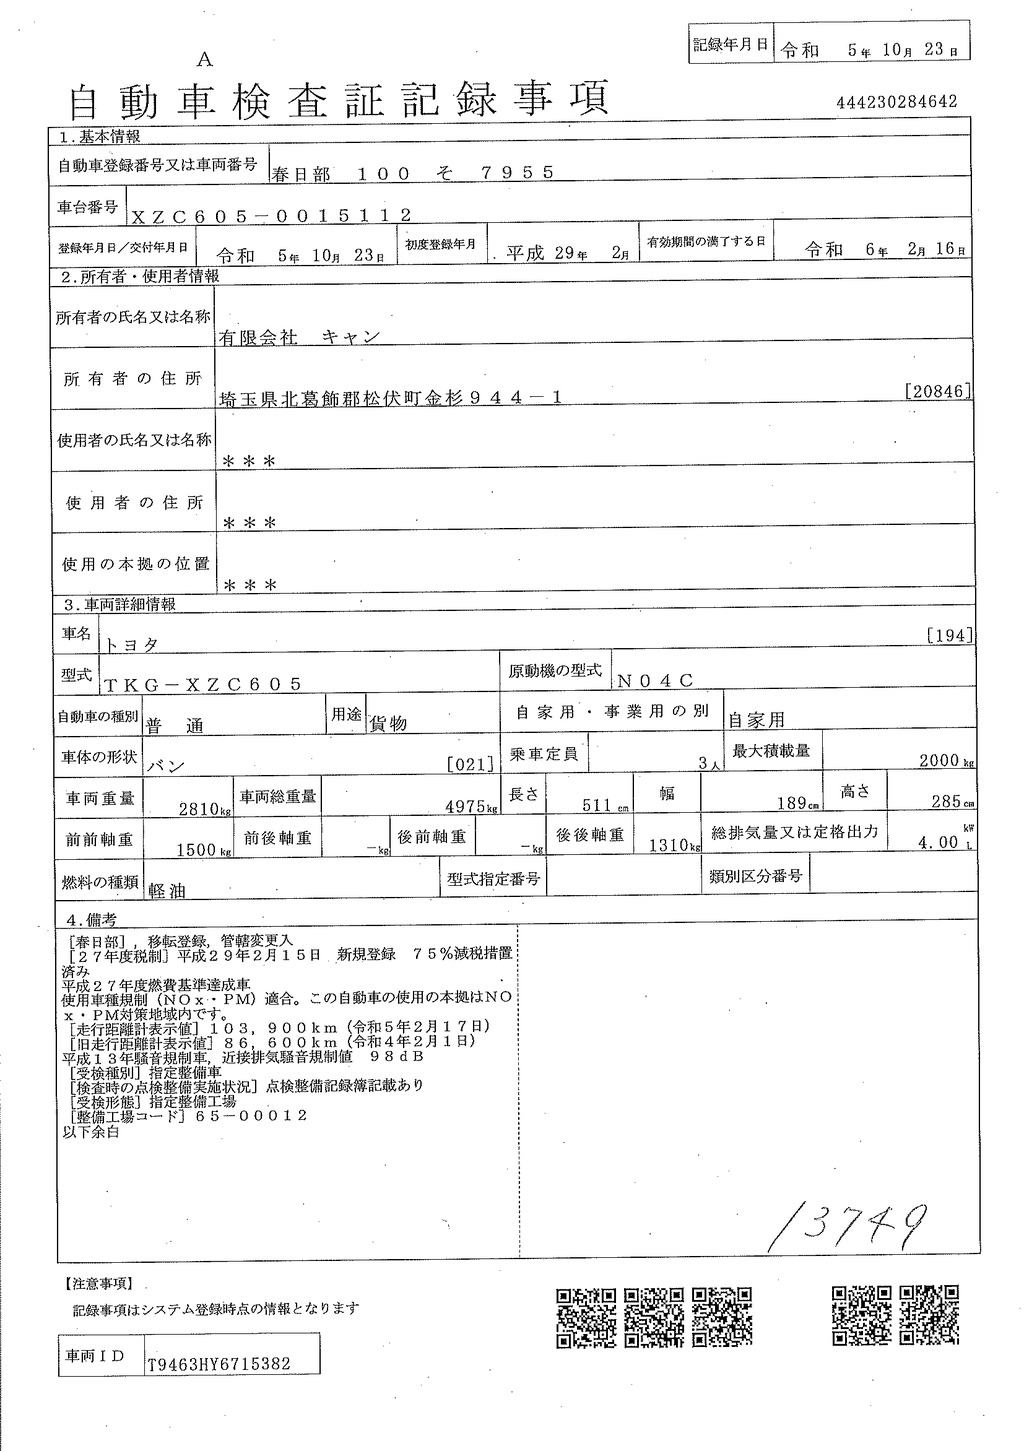 記録年月日 令和 5年 10月 23日
A
自動車検査証記録事項
444230284642
1.基本情報
自動車登録番号又は車両番号 春日部 100 そ 7955
車台番号 XZC605-0015112
登録年月日/交付年月日 令和 5年 10月 23日 初度登録年月 平成 29年 2月 有効期間の満了する日 令和 6年 2月 16日
2.所有者・使用者情報
所有者の氏名又は名称 有限会社 キャン
所有者の住所 埼玉県北葛飾郡松伏町金杉944-1 [20846]
使用者の氏名又は名称 ***
使用者の住所 ***
使用の本拠の位置 ***
3.車両詳細情報
車名 トヨタ [194]
型式 TKG-XZC605 原動機の型式 N04C
自動車の種別 普通 用途 貨物 自家用・事業用の別 自家用
車体の形状 バン [021] 乗車定員 3人 最大積載量 2000kg
車両重量 2810kg 車両総重量 4975kg 長さ 511cm 幅 189cm 高さ 285cm
前前軸重 1500kg 前後軸重 -kg 後前軸重 -kg 後後軸重 1310kg 総排気量又は定格出力 4.00 kW L
燃料の種類 軽油 型式指定番号 類別区分番号
4.備考
[春日部],移転登録,管轄変更入
[27年度税制]平成29年2月15日 新規登録 75%減税措置
済み
平成27年度燃費基準達成車
使用車種規制(NOx・PM)適合。この自動車の使用の本拠はNO
x・PM対策地域内です。
[走行距離計表示値]103,900km(令和5年2月17日)
[旧走行距離計表示値]86,600km(令和4年2月1日)
平成13年騒音規制車,近接排気騒音規制値 98dB
[受検種別]指定整備車
[検査時の点検整備実施状況]点検整備記録簿記載あり
[受検形態]指定整備工場
[整備工場コード]65-00012
以下余白
13749
【注意事項】
記録事項はシステム登録時点の情報となります
車両ID T9463HY6715382